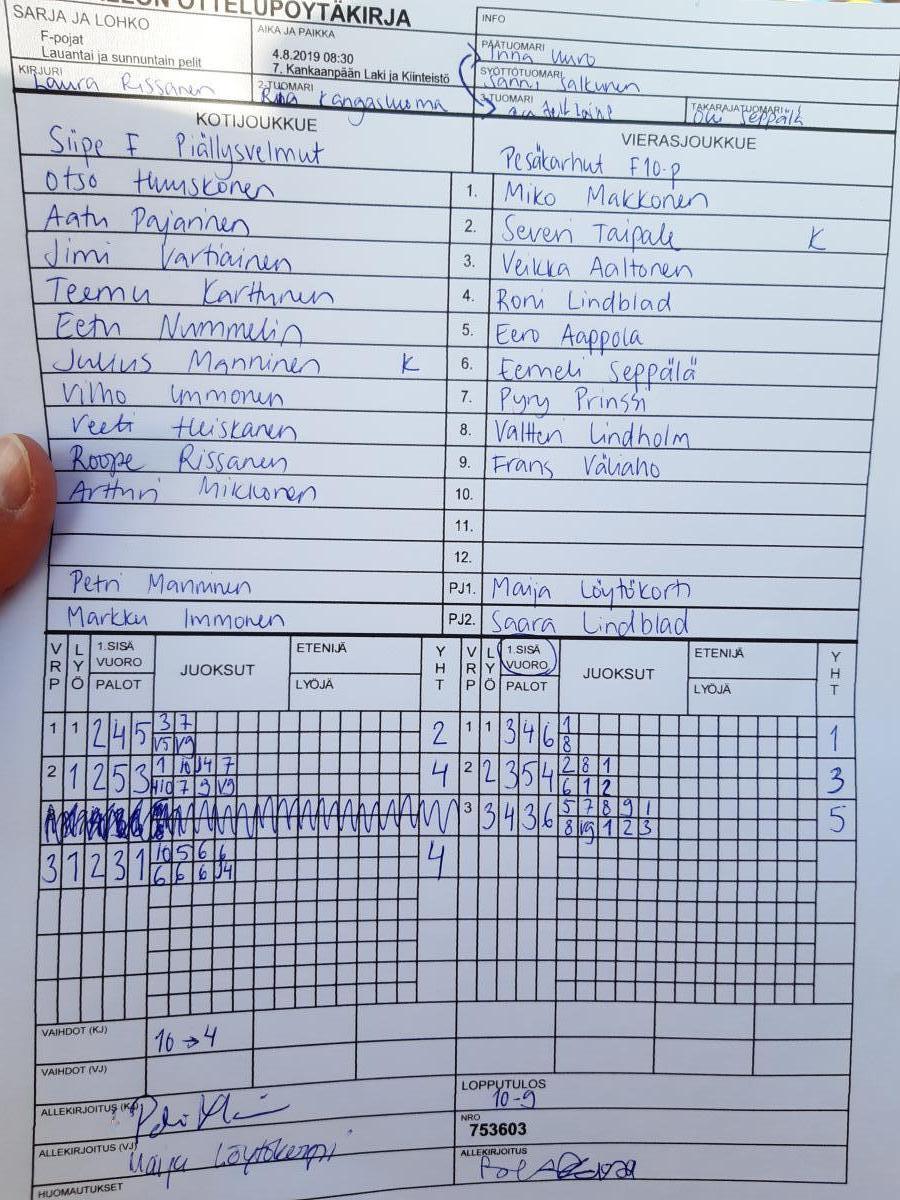 OTTELUPÖYTÄKIRJA
SARJA JA LOHKO
F-pojat
Lauantai ja sunnuntain pelit
AIKA JA PAIKKA
4.8.2019 08:30
7. Kankaanpään Laki ja Kiinteistö
INFO
PÄÄTUOMARI
Inna Uuro
SYÖTTÖTUOMARI
Sanni Salkunen
KIRJURI
Laura Rissanen
2-TUOMARI
Kangasluoma
3-TUOMARI
TAKARAJATUOMARI
Olli Seppälä
KOTIJOUKKUE
Siipe F Piällysvelmut
VIERASJOUKKUE
Pesäkarhut F10-p
Otso Huuskonen 1. Miko Makkonen
Aatu Pajarinen 2. Severi Taipale K
Jimi Vartiainen 3. Veikka Aaltonen
Teemu Karttunen 4. Roni Lindblad
Eetu Nummelin 5. Eero Aappola
Julius Manninen K 6. Eemeli Seppälä
Vilho Immonen 7. Pyry Prinssi
Veeti Heiskanen 8. Valtteri Lindholm
Roope Rissanen 9. Frans Väliaho
Artturi Mikkonen 10.
11.
12.
Petri Manninen PJ1. Maija Löytökorpi
Markku Immonen PJ2. Saara Lindblad
VRP LYÖ 1.SISÄ VUORO PALOT JUOKSUT ETENIJÄ LYÖJÄ YHT VRP LYÖ 1.SISÄ VUORO PALOT JUOKSUT ETENIJÄ LYÖJÄ YHT
1 1 2 4 5 3 7 2 1 1 3 4 6 1 1
V5 V9 8
2 1 2 5 3 1 10 J4 7 4 2 2 3 5 4 2 8 1 3
H10 7 9 V9 6 1 2
3 3 4 3 6 5 7 8 9 1 5
8 V9 1 2 3
3 1 2 3 1 10 5 6 6 4
6 6 6 J4
VAIHDOT (KJ) 10 → 4
VAIHDOT (VJ)
LOPPUTULOS
10-9
ALLEKIRJOITUS (KJ)
NRO
753603
ALLEKIRJOITUS (VJ) Maija Löytökorpi
ALLEKIRJOITUS
HUOMAUTUKSET